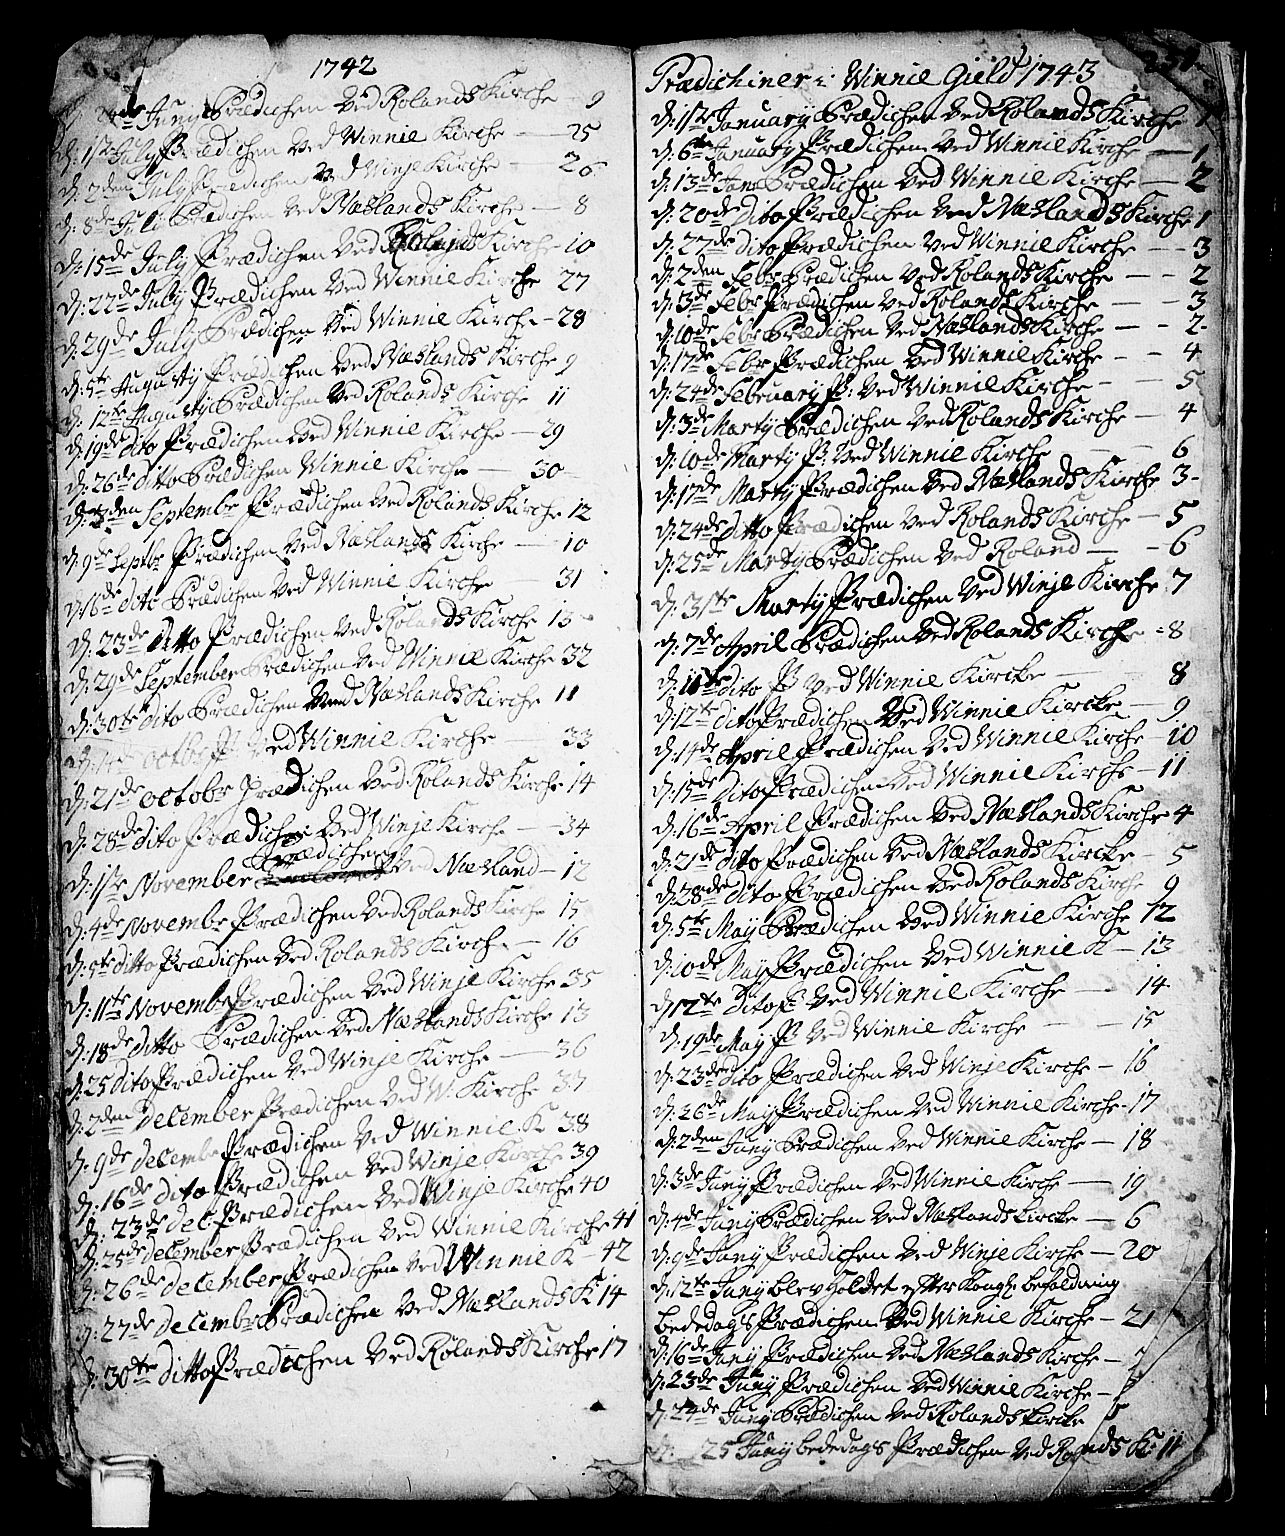 1742
24de Juny Prædichen Ved Rolands Kirche - 9
d: 1ste July Prædichen Ved Winnie Kirche - 25
d: 2den July Prædichen Ved Winje Kirche - 26
d: 8de Juli Prædichen Ved Næslands Kirche - 8
d: 15de July Prædichen Ved Rolands Kirche - 10
d: 22de July Prædichen Ved Winnie Kirche 27
d: 29de July Prædichen Ved Winnie Kirche - 28
d: 5te Augusty Prædichen Ved Næslands Kirche 9
d: 12te Augusty Prædichen Ved Rolands Kirche 11
d: 19de dito Prædichen Ved Winnie Kirche - 29
d: 26de ditto Prædichen Winnie Kirche - 30
d: 2den Septembr Prædichen Ved Rolands Kirche 12
d: 9de Septbr Prædichen Ved Næslands Kirche - 10
d: 16de dito Prædichen Ved Winnie Kirche - 31
d: 23de ditto Prædichen Ved Rolands Kirche 13
d: 29de September Prædichen Ved Winnie Kirche 32
d: 30te dito Prædichen Ved Næslands Kirche 11
octobr P. Ved Winnie Kirche 33
d: 21de octobr Prædichen Ved Rolands Kirche - 14
d: 28de dito Prædichen Ved Winje Kirche - 34
d: 1ste November Prædichen Ved Næsland - 12
d: 4de Novembr Prædichen Ved Rolands Kirche 15
d: 5te ditto Prædichen Ved Rolands Kirche - 16
d: 11te Novembr Prædichen Ved Winje Kirche 35
d: 18de ditto Prædichen Ved Næslands Kirche 13
d: 25 dito Prædichen Ved Winje Kirche - 36
d: 2den december Prædichen Ved W. Kirche 37
d: 9de decembr Prædichen Ved Winnie K 38
d: 16de dito Prædichen Ved Winje Kirche 39
d: 23de dec Prædichen Ved Winje Kirche 40
d: 25de december Prædichen Ved Winnie Kirche 41
d: 26de december Prædichen Ved Winnie K - 42
d: 27de decembr Prædichen Ved Næslands K 14
d: 30te ditto Prædichen Ved Rolands Kirche 17
Prædichiner i Winnie Gield 1743
d: 1ste January Prædichen Ved Rolands Kirche 1
d: 6te January Prædichen Ved Winnie Kirche - 1
d: 13de Janr Prædichen Ved Winnie Kirche - 2
d: 20de dito Prædichen Ved Næslands Kirche 1
d: 27de dito Prædichen Ved Winnie Kirche - 3
d: 2den Febr Prædichen Ved Rolands Kirche - 2
d: 3de Febr Prædichen Ved Rolands Kirche - 3
d: 10de Febr Prædichen Ved Næslands Kirche - 2
d: 17de Febr Prædichen Ved Winnie Kirche - 4
d: 24de February P: Ved Winnie Kirche - 5
d: 3de Marty Prædichen Ved Rolands Kirche - 4
d: 10de Marty P. Ved Winnie Kirche - 6
d: 17de Marty Prædichen Ved Næslands Kirche 3
d: 24de ditto Prædichen Ved Rolands Kirche - 5
d: 25de Marty Prædichen Ved Roland - 6
d: 31te Marty Prædichen Ved Winje Kirche 7
d: 7de April Prædichen Ved Rolands Kirche - 8
d: 11te dito P Ved Winnie Kircke - 8
d: 12te dito Prædichen Ved Winnie Kircke - 9
d: 14de April Prædichen Ved Winnie Kirche - 10
d: 15de dito Prædichen Ved Winnie Kirche - 11
d: 16de April Prædichen Ved Næslands Kirche 4
d: 21de dito Prædichen Ved Næslands Kircke - 5
d: 28de dito Prædichen Ved Rolands Kirche 9
d: 5te May Prædichen Ved Winnie Kirche 12
d: 10de May Prædichen Ved Winnie K - 13
d: 12te dito P Ved Winnie Kirche - 14
d: 19de May P Ved Winnie Kirche - 15
d: 23de dito Prædichen Ved Winje Kirche - 16
d: 26de May Prædichen Ved Winnie Kirche - 17
d: 2den Juny Prædichen Ved Winnie Kirche - 18
d: 3de Juny Prædichen Ved Winnie Kirche - 19
d: 4de Juny Prædichen Ved Næslands Kircke - 6
d: 9de Juny Prædichen Ved Winje Kirche - 20
d: 12te Juny blev holdet efter Kongl: befaldning
bededags Prædichen Ved Winnie Kirche - 21
d: 16de Juny Prædichen Ved Næslands Kirche - 7
d: 23de Juny Prædichen Ved Winnie Kirche -
d: 24de Juny Prædichen Ved Rolands Kircke
d: 25 Juny bededags Prædichen Ved Rolands K: 11